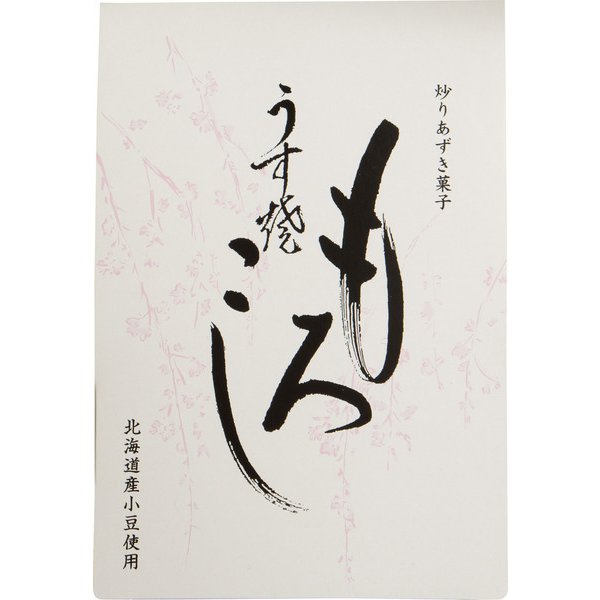 炒りあずき菓子
もろこし
うす焼
北海道産小豆使用